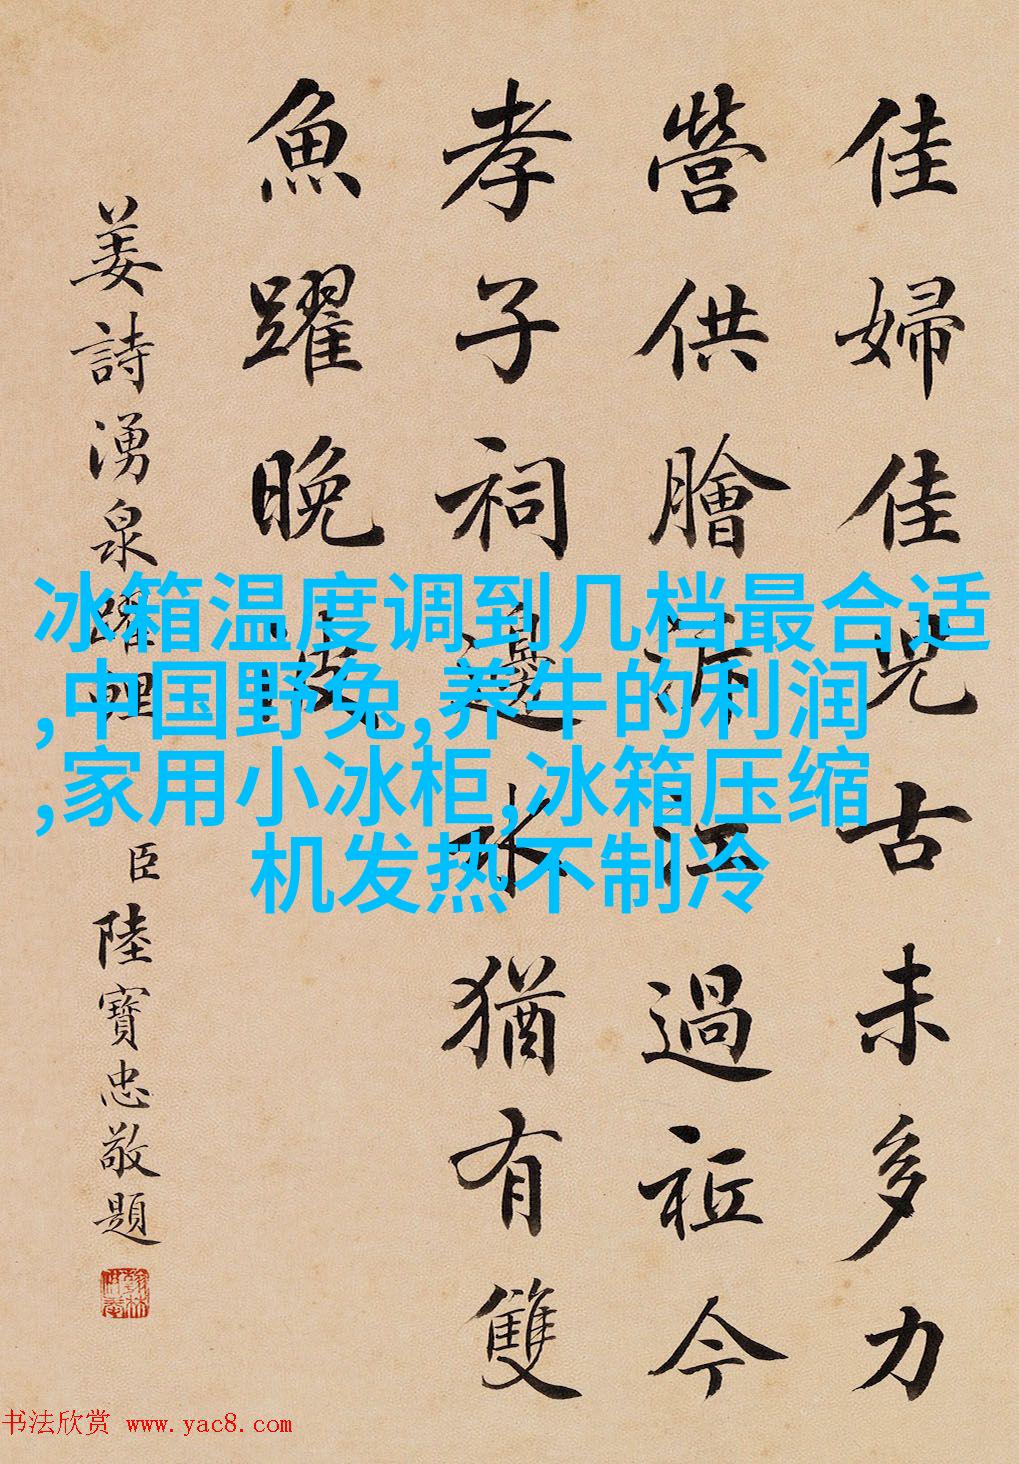 佳婦佳兒古未多力
營供膾泝江過祗今
孝子祠邊水猶有雙
魚躍晚
姜詩湧泉躍鯉
臣陸寶忠敬題
冰箱温度调到几档最合适
,中国野兔,养牛的利润
,家用小冰柜,冰箱压缩
机发热不制冷
书法欣赏 www.yac8.com